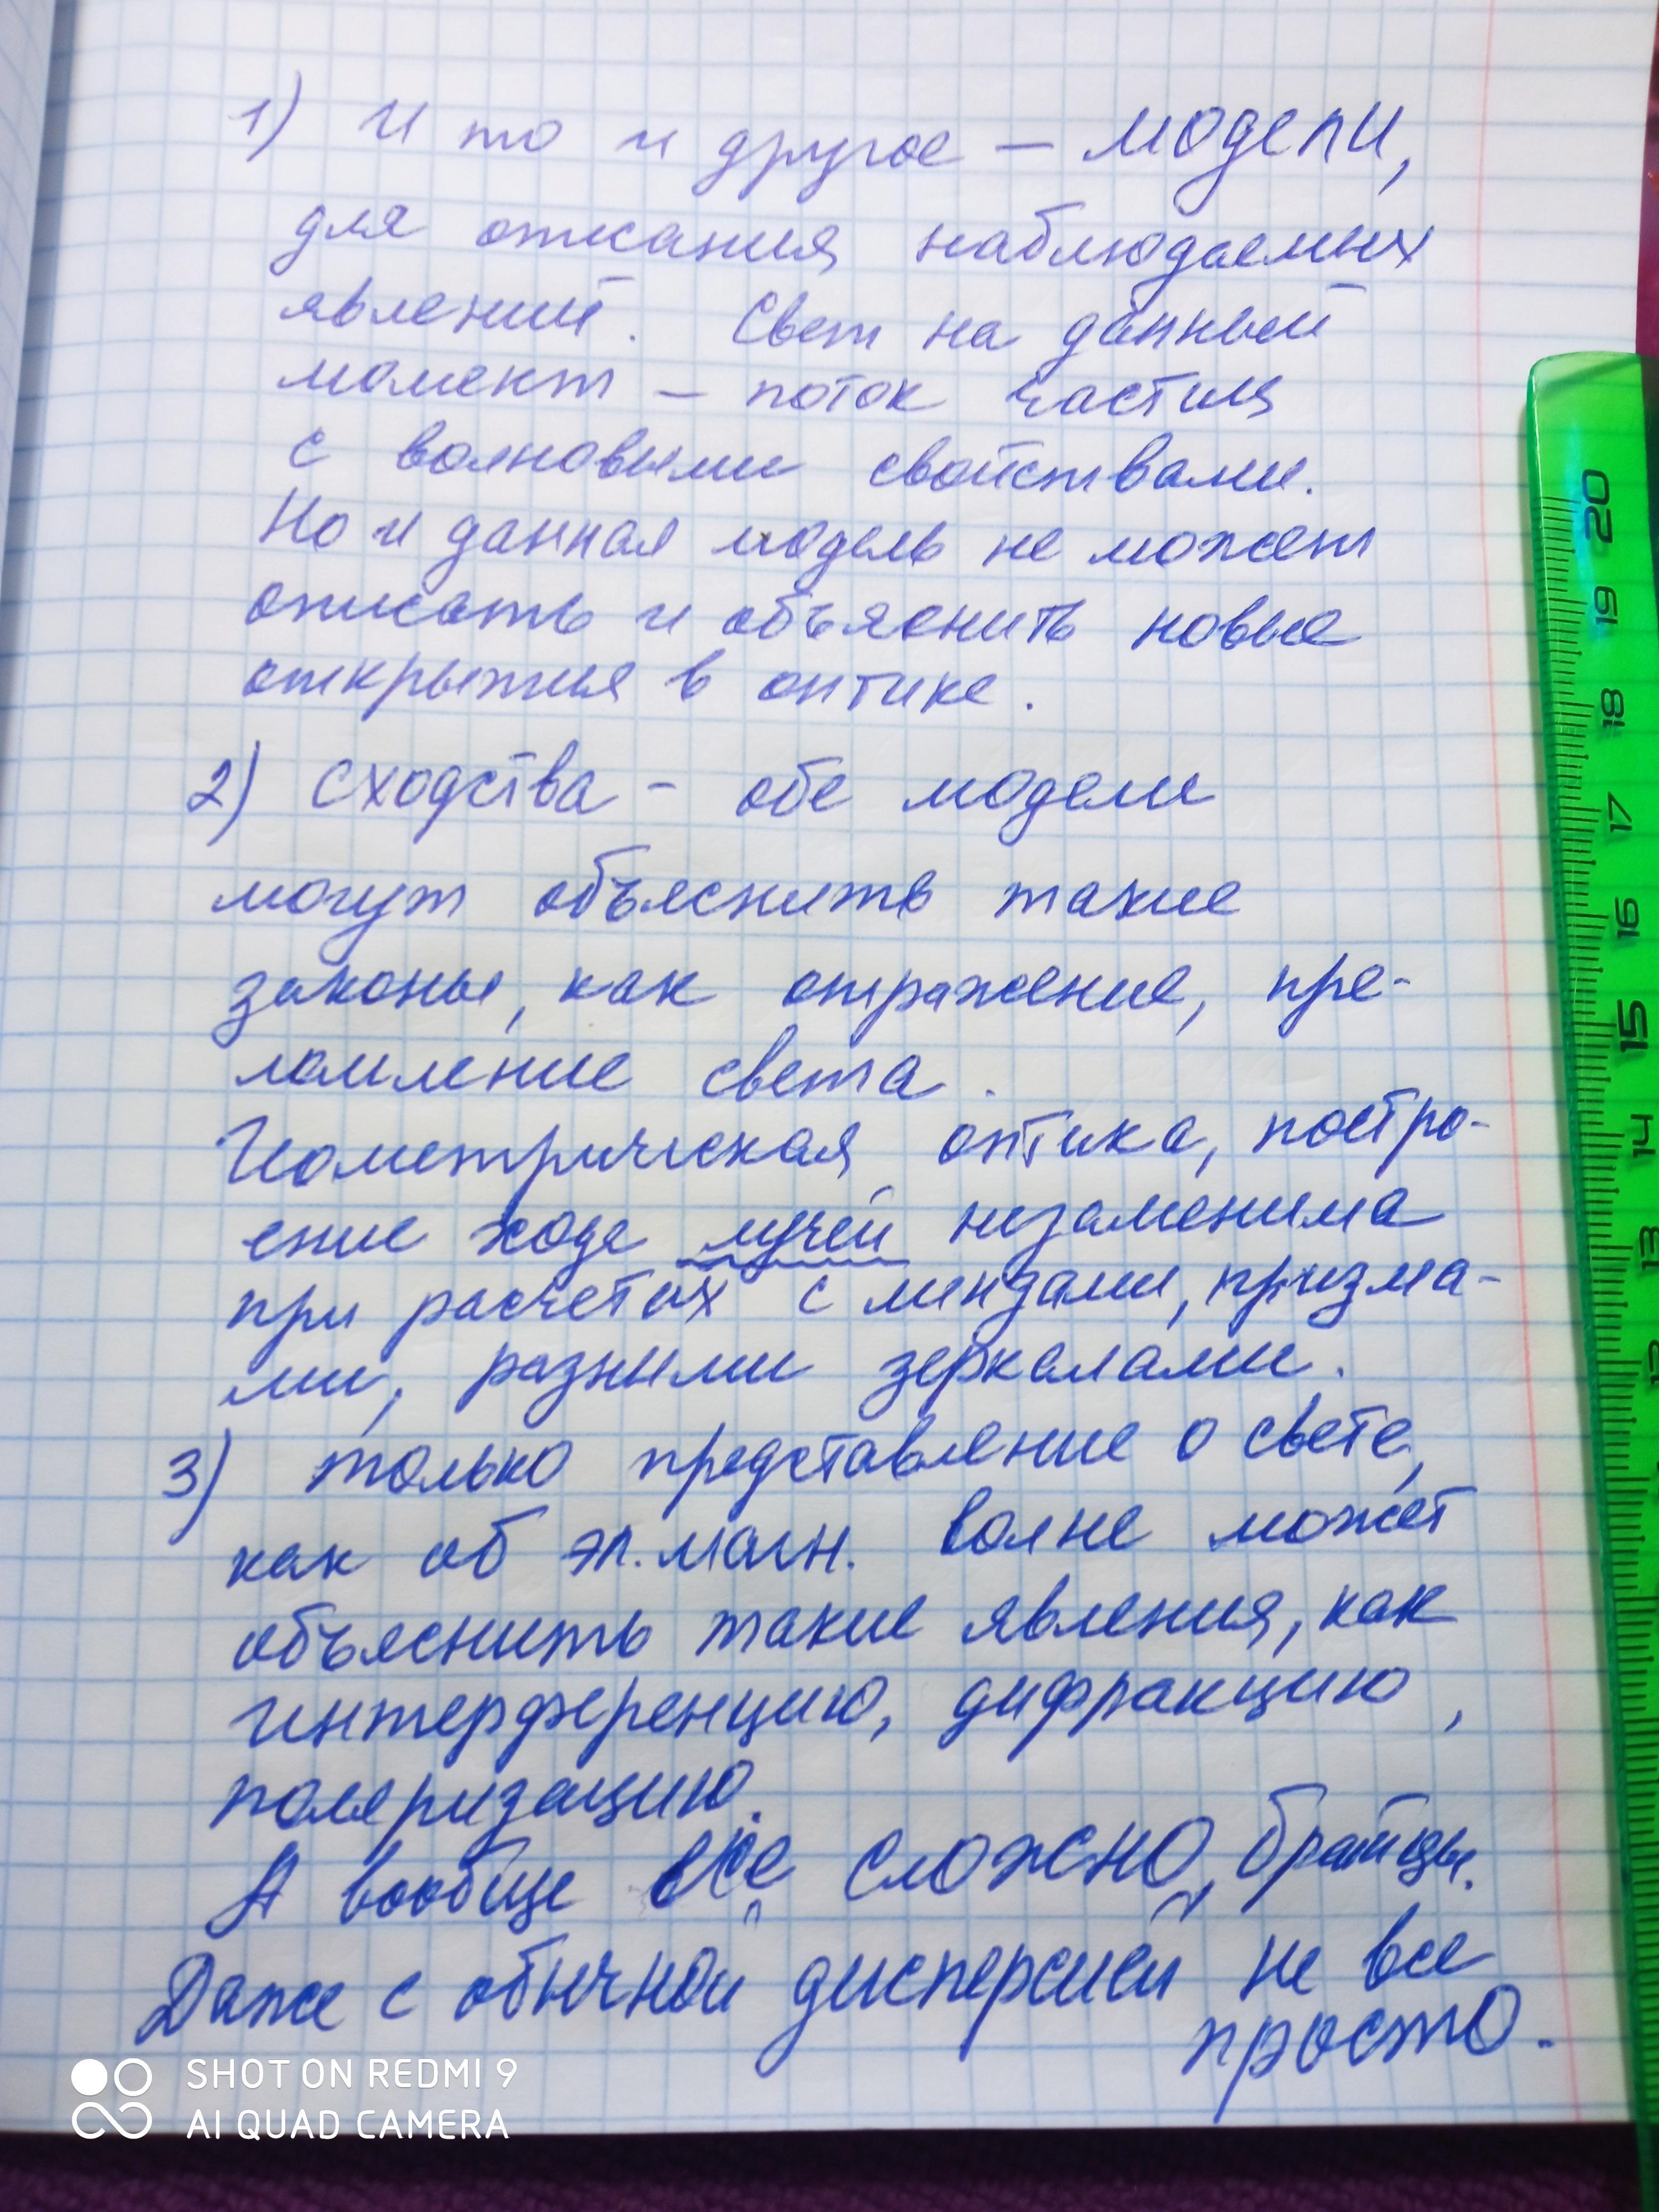 1) И то и другое – модели,
для описания наблюдаемых
явлений. Свет на данный
момент – поток частиц
с волновыми свойствами.
Но и данная модель не может
описать и объяснить новые
открытия в оптике.
2) Сходства - обе модели
могут объяснить такие
законы, как отражение, пре-
ломление света.
Геометрическая оптика, постро-
ение хода лучей незаменима
при расчетах с линзами, призма-
ми, разными зеркалами.
3) только представление о свете,
как об эл.магн. волне может
объяснить такие явления, как
интерференцию, дифракцию,
поляризацию.
А вообще все сложно, братцы.
Даже с обычной дисперсией не все
просто.
SHOT ON REDMI 9
AI QUAD CAMERA
20
19
18
17
16
15
14
13
12